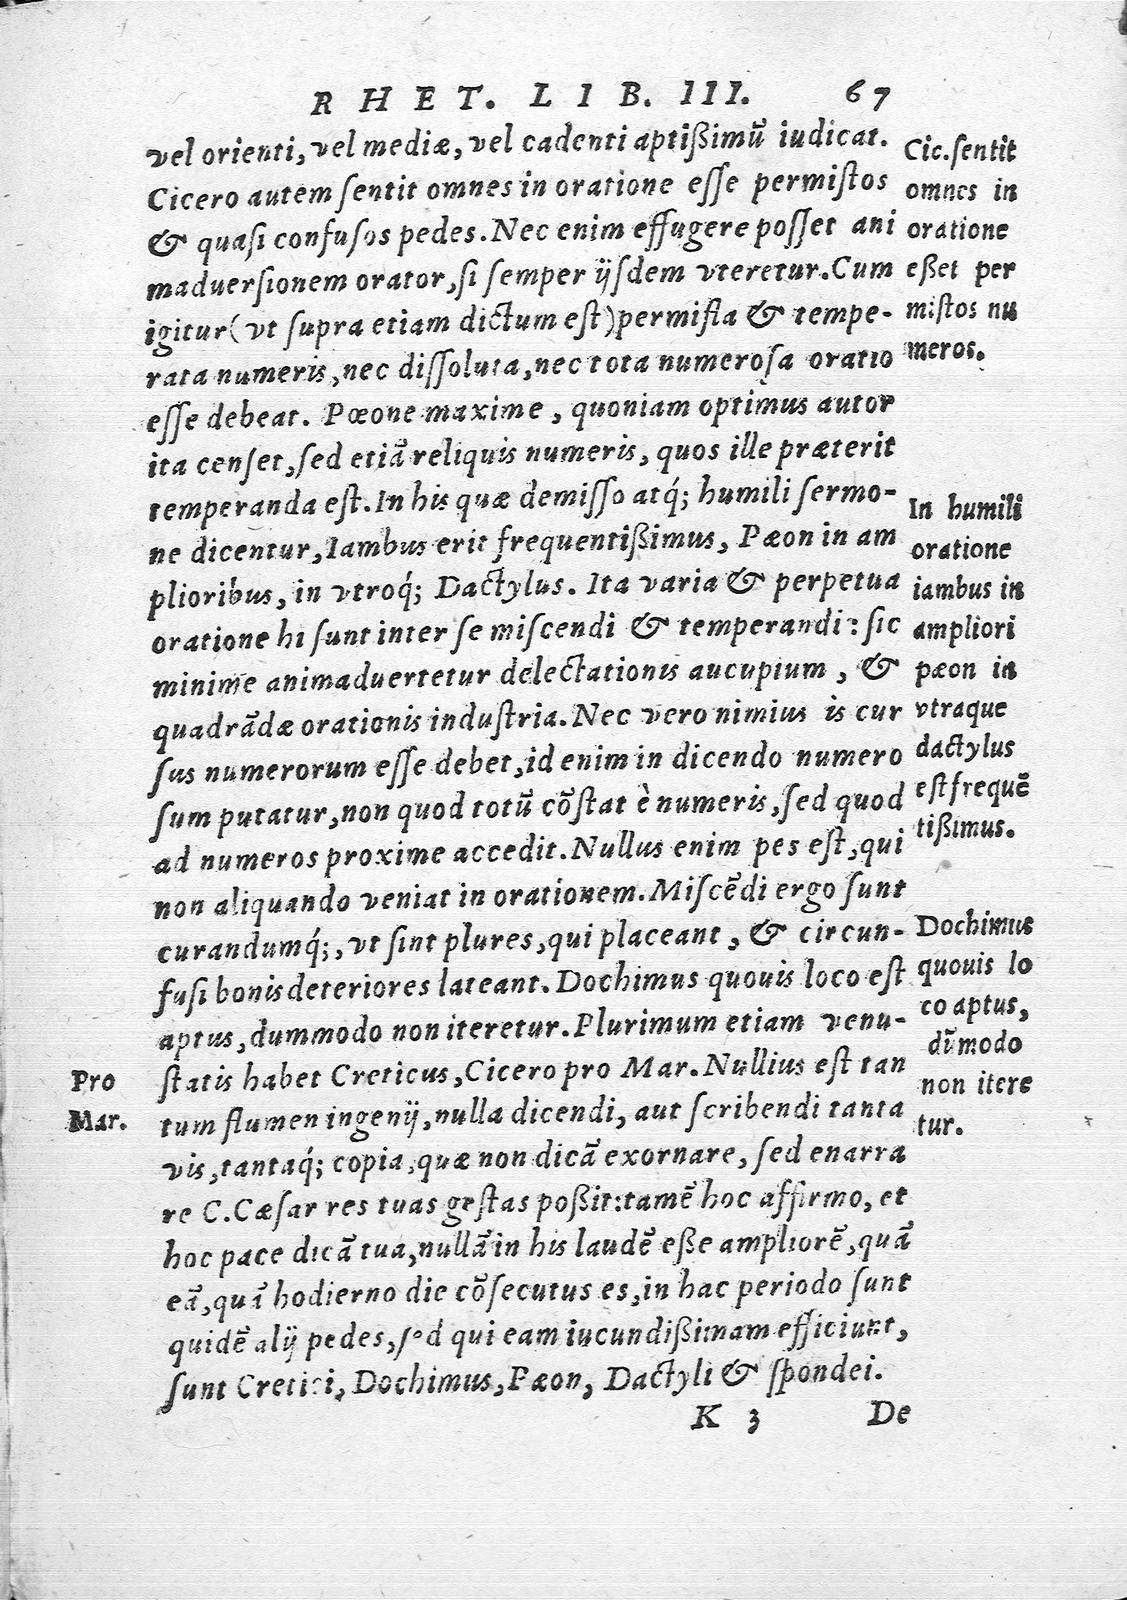 RHET. LIB. III. 67
vel orienti, vel mediæ, vel cadenti aptißimū iudicat.
Cicero autem ſentit omnes in oratione eſſe permiſtos
& quaſi confuſos pedes. Nec enim effugere poſſet ani
maduerſionem orator, ſi ſemper ijſdem vteretur. Cum
igitur (vt ſupra etiam dictum eſt) permiſta & tempe-
rata numeris, nec diſſoluta, nec tota numeroſa oratio
eſſe debeat. Pœone maxime, quoniam optimus autor
ita cenſet, ſed etiā reliquis numeris, quos ille præterit
temperanda eſt. In his quæ demiſſo atq́; humili ſermo-
ne dicentur, Iambus erit frequentißimus, Pæon in am
plioribus, in vtroq́; Dactylus. Ita varia & perpetua
oratione hi ſunt inter ſe miſcendi & temperandi: ſic
minime animaduertetur delectationis aucupium, &
quadrādæ orationis induſtria. Nec vero nimius is cur
ſus numerorum eſſe debet, id enim in dicendo numero
ſum putatur, non quod totū cōſtat è numeris, ſed quod
ad numeros proxime accedit. Nullus enim pes eſt, qui
non aliquando veniat in orationem. Miſcēdi ergo ſunt
curandumq́;, vt ſint plures, qui placeant, & circun-
fuſi bonis deteriores lateant. Dochimus quouis loco eſt
aptus, dummodo non iteretur. Plurimum etiam venu-
ſtatis habet Creticus, Cicero pro Mar. Nullius eſt tan
tum flumen ingenij, nulla dicendi, aut ſcribendi tanta
vis, tantaq́; copia, quæ non dicā exornare, ſed enarra
re C. Cæſar res tuas geſtas poßit: tamē hoc affirmo, et
hoc pace dicā tua, nullā in his laudē eße ampliorē, quā
eā, quā hodierno die cōſecutus es, in hac periodo ſunt
quidē alij pedes, ſed qui eam iucundißimam efficiunt,
ſunt Cretici, Dochimus, Pæon, Dactyli & ſpondei.
K 3 De
Cic. ſentit
omnes in
oratione
eßet per
miſtos nu
meros.
In humili
oratione
iambus in
ampliori
pæon in
vtraque
dactylus
eſt frequē
tißimus.
Dochimus
quouis lo
co aptus,
dūmodo
non itere
tur.
Pro
Mar.